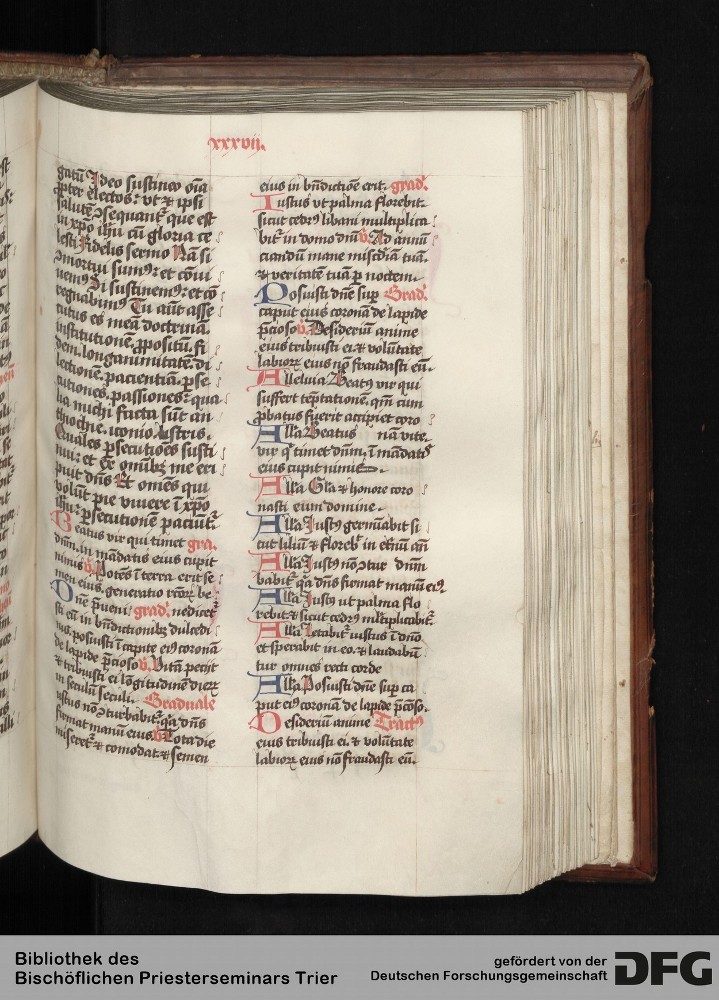 xxxvij.
gatū Ideo sustineo oīa
ꝓpter electos: vt ⁊ ipsi
salutē ↄsequantᷣ que est
in xp̄o ihū cū gloria ce
lesti Fidelis sermo Nā si
ↄmortui sumꝰ: et cōui
uemꝰ Si sustinemꝰ: et cō
regnabimꝰ Tu aūt asse
cutus es meā doctrinā.
institutionē. ꝓpositū. fi
dem. longanimitatē. di
lectionē. pacientiā. ꝑse
cutiones. passiones: qua
lia michi facta sūt an
thiochie. iconio ⁊ listris.
Quales ꝑsecutiōes susti
nui: et ex omībꝫ me eri
puit dn̄s Et omēs qui
volūt pie viuere ī xp̄o
ihū: ꝑsecutionē paciūtᷣ.
Beatus vir qui timet gra.
dnm̄. in mādatis eius cupit
nimis v̄. Potēs ī terra erit se
men eius. generatio rc̄orꝫ be
Dne p̄ueni. grad. nedicetᷣ
sti eū in bn̄dictionibꝫ dulcedi
nis. posuisti ī capite eiꝰ coronā
de lapide p̄cioso v̄. Vitā peciit
⁊ tribuisti ei lōgitudinē dierꝫ
in seculū seculi. Graduale
Iustus nō ↄturbabitᷣ. qꝛ dn̄s
firmat manū eius v̄. Tota die
miseretᷣ ⁊ comodat: ⁊ semen
eius in bn̄dictiōe erit. grad.
Iustus vt palma florebit.
sicut cedrꝰ libani multiplica
bitᷣ in domo dn̄i v̄. Ad annū
ciandū mane misc̄diā tuā.
⁊ veritatē tuā ꝑ noctem.
Posuisti dn̄e suꝑ Grad.
caput eius coronā de lapide
p̄cioso v̄. Desideriū anime
eius tribuisti ei. ⁊ volūtate
labiorꝫ eius nō fraudasti eū.
Alleluia Beatꝰ vir qui
suffert tēptationē. qm̄ cum
ꝓbatus fuerit accipiet coro
Allā Beatus nā vite.
vir qͥ timet dnm̄. ī mādatꝭ
eius cupit nimis.
Allā Glā ⁊ honore coro
nasti eum domine.
Allā Iustꝰ germīabit si
cut liliū ⁊ florebᷣ in etnū an̄
Allā Iustꝰ nō ↄtur dnm̄
babitᷣ qꝛ dn̄s firmat manū eiꝰ.
Allā Iustꝰ ut palma flo
rebit ⁊ sicut cedrꝰ mltiplicabitᷣ.
Allā Letabitᷣ iustus ī dn̄o
et sperabit in eo. ⁊ laudabū
tur omnes recti corde
Allā Posuisti dn̄e suꝑ ca
put eiꝰ coronā de lapide p̄cōso.
Desideriū anime Tractꝰ
eius tribuisti ei. ⁊ volūtate
labiorꝫ eius nō fraudasti eū.
Bibliothek des
Bischöflichen Priesterseminars Trier
gefördert von der
Deutschen Forschungsgemeinschaft
DFG